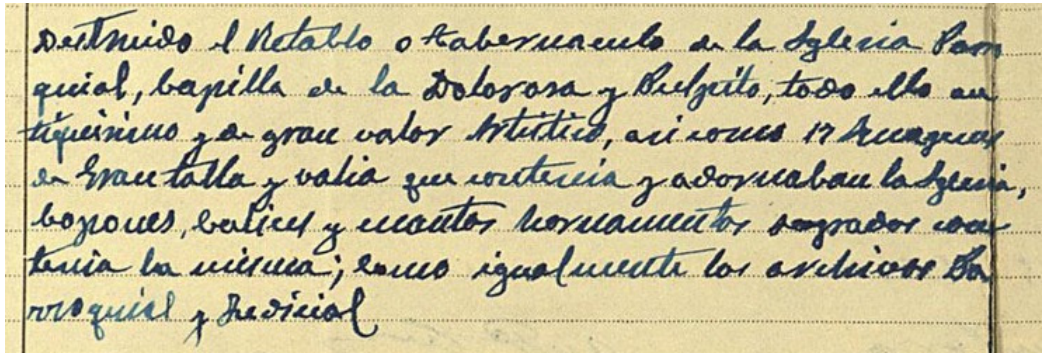 Destruido el Retablo o tabernaculo de la Iglesia Parro
quial, Capilla de la Dolorosa y Pulpito, todo ello an
tiquisimo y de gran valor Artistico, asi como 17 Imagenes
de Gran talla y valia que contenia y adornaban la Iglesia,
Copones, Calices y cuantos hornamentos sagrados con
tenia la misma; como igualmente los archivos Pa
rroquial y Judicial